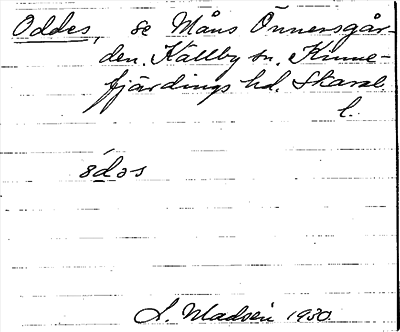 Oddes, se Måns Önnersgår-
den. Källby sn. Kinne-
fjärdings hd. Skarab.
l.
ådəs
L. Madsén 1930.